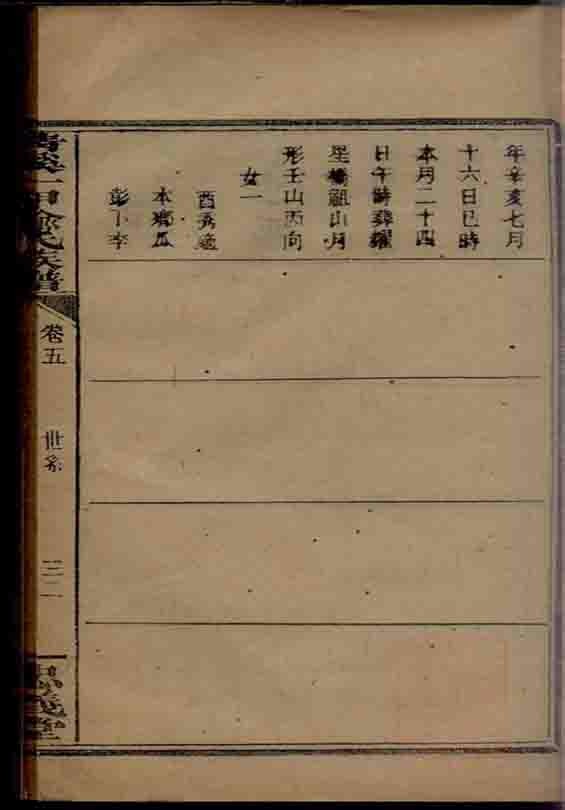 年辛亥七月
十六日巳時
本月二十四
日午時葬耀
星橋祖山月
形壬山丙向
女一
酉秀適
本鄉瓜
彭卜李
族譜
卷五
世系
三二